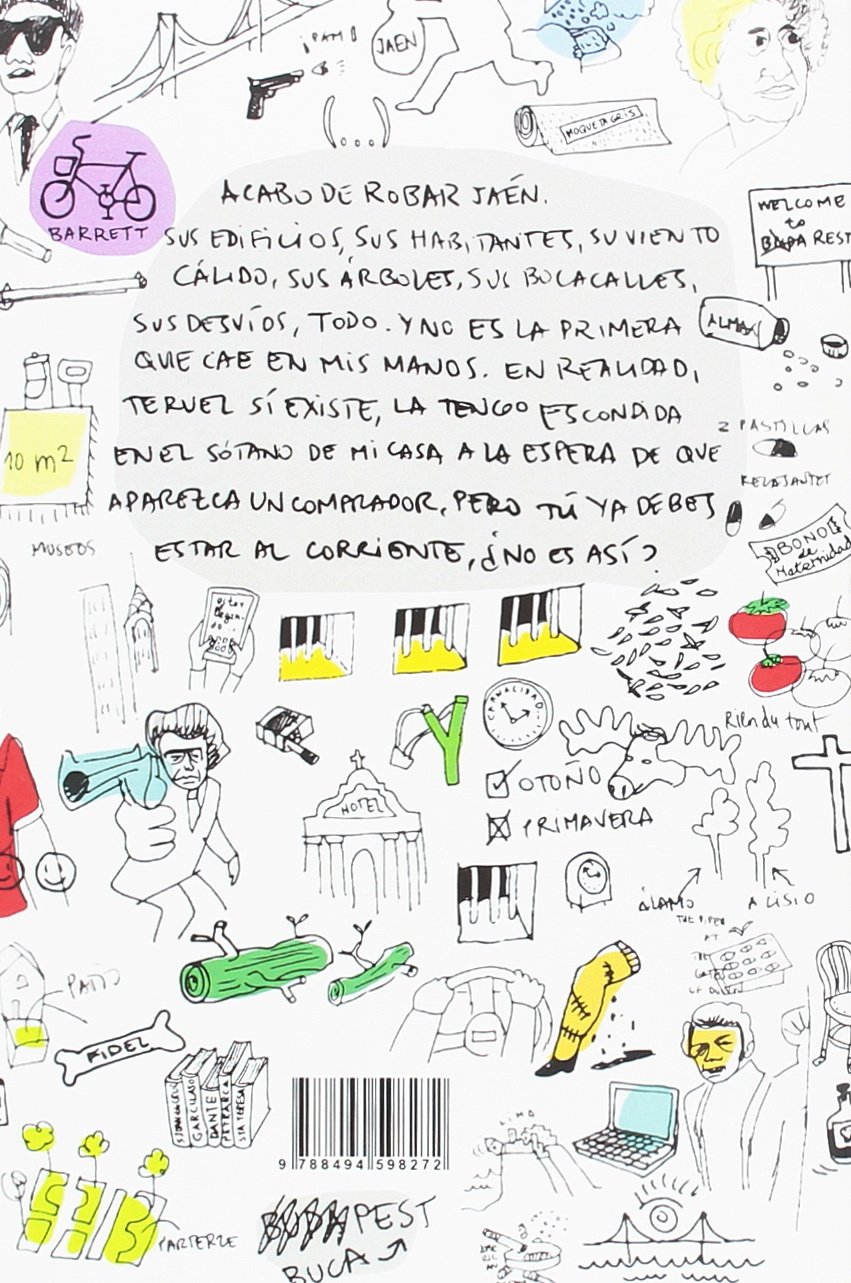 ¡PAM!
JAÉN
(...)
MOQUETA GRIS
BARRETT
WELCOME
to
REST
ACABO DE ROBAR JAÉN.
SUS EDIFICIOS, SUS HABITANTES, SU VIENTO
CÁLIDO, SUS ÁRBOLES, SUS BOCACALLES,
SUS DESVÍOS, TODO. Y NO ES LA PRIMERA
QUE CAE EN MIS MANOS. EN REALIDAD,
TERUEL SÍ EXISTE, LA TENGO ESCONDIDA
EN EL SÓTANO DE MI CASA A LA ESPERA DE QUE
APAREZCA UN COMPRADOR, PERO TÚ YA DEBES
ESTAR AL CORRIENTE, ¿NO ES ASÍ?
ALMAX
10 m2
2 PASTILLAS
RELAJANTES
BONO
de
Maternidad
MUSEOS
CARNALIDAD
Rien du tout
HOTEL
OTOÑO
PRIMAVERA
ÁLAMO
ALISIO
THE PIPER
AT
THE
PATIO
FIDEL
S. JUAN DE LA CRUZ
GARCILASO
DANTE
PETRARCA
STA TERESA
LIMA
9 788494 598272
PARTERRE
PEST
BUCA